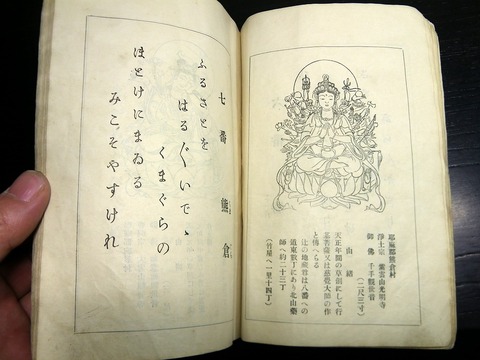 耶麻郡熊倉村
浄土宗 紫雲山光明寺
御佛 千手観世音
(二尺三寸)
由緒
天正年間の草創にして行
基菩薩又は慈覚大師の作
と傳へらる
辻の地蔵は八番への
道東数丁にあり北山薬
師へ約二十三丁
(竹屋へ一里十四丁)
七番 熊倉
ふるさとを
はる〲いでゝ
くまぐらの
ほとけにまゐる
みこそやすけれ